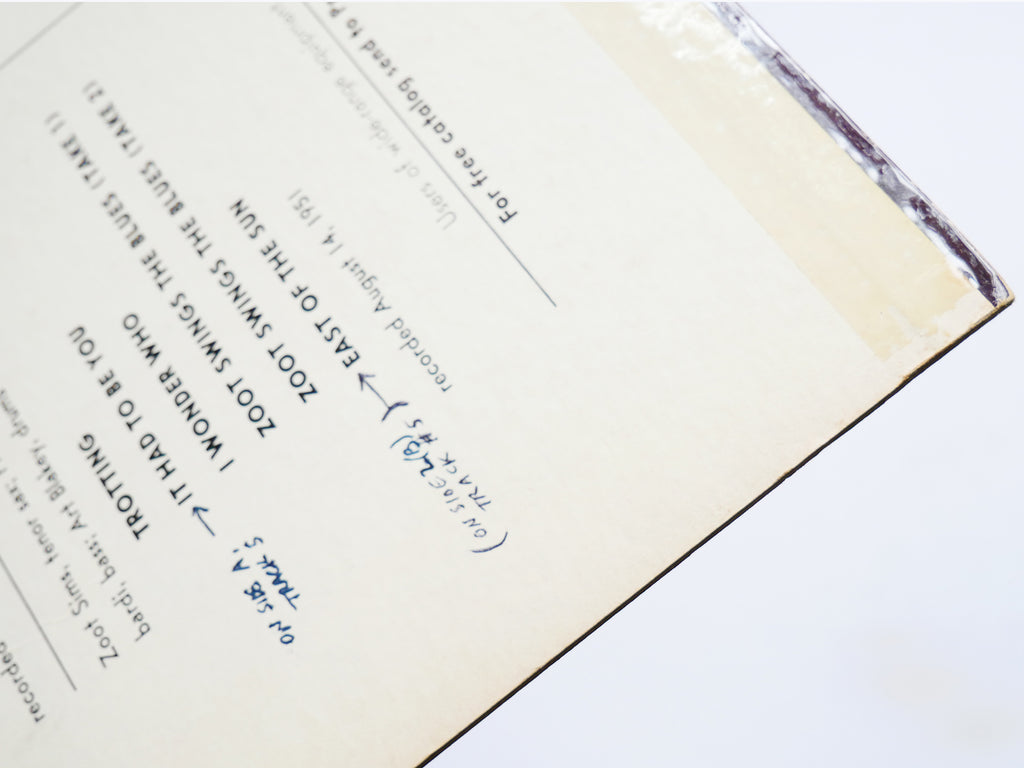 recorded
Zoot Sims, tenor sax;
bardi, bass; Art Blakey, drums
TROTTING
ON SIDE A! → IT HAD TO BE YOU
TRACK 5
I WONDER WHO
ZOOT SWINGS THE BLUES (TAKE 1)
ZOOT SWINGS THE BLUES (TAKE 2)
(ON SIDE 2(B) → EAST OF THE SUN
TRACK #5)
recorded August 14, 1951
Users of wide-range equipment
For free catalog send to